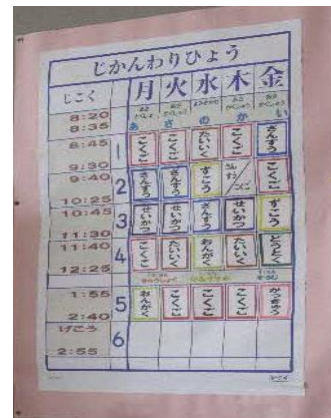 じかんわりひょう
じこく 月 火 水 木 金
8:20
8:35
あさのかい
8:45 1 こくご こくご たいいく こくご さんすう
9:30
9:40 2 さんすう さんすう ずこう こくご
10:25
10:45 3 せいかつ せいかつ さんすう せいかつ ずこう
11:30
11:40 4 こくご たいいく おんがく たいいく どうとく
12:25
1:55 5 おんがく こくご こくご こくご がっきゅう
2:40
げこう 6
2:55